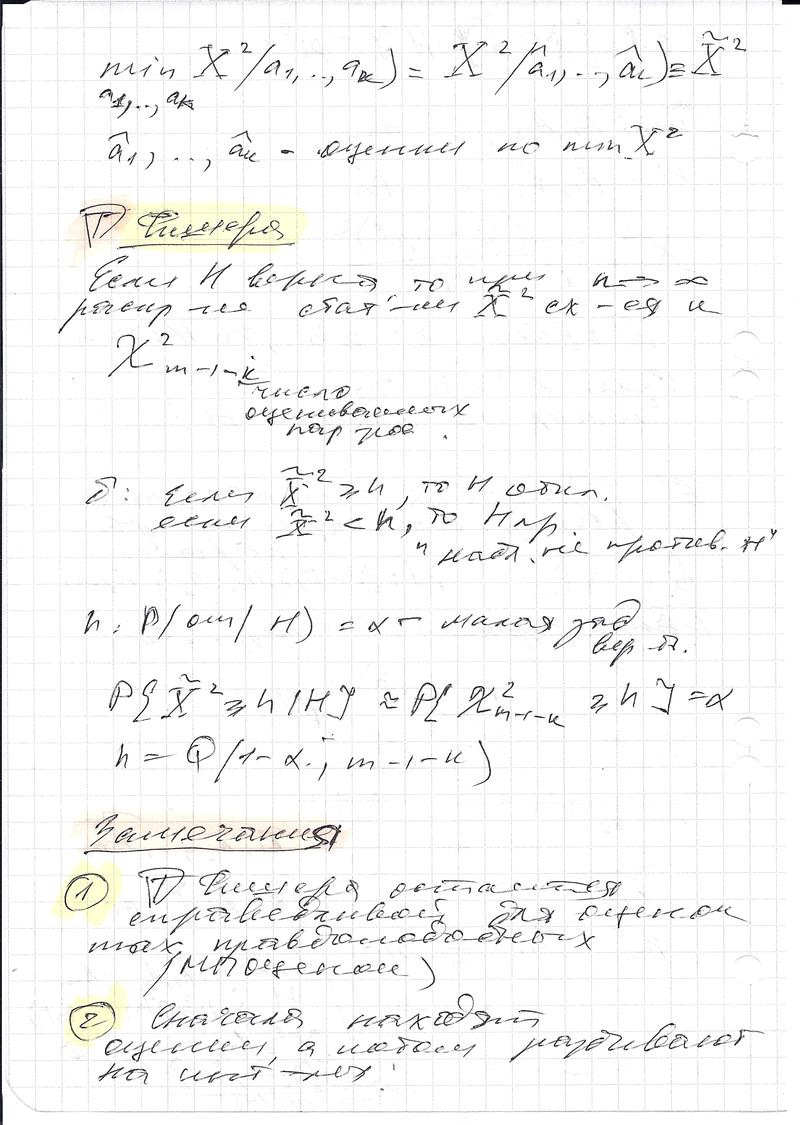 min X²(a₁,..,aₖ) = X²(â₁,..,âₖ) ≡ X̃²
a₁,..,aₖ
â₁,..,âₖ - оценки по min X²
Т Фишера
Если H верна, то при n→∞
распр-ие стат-ки X̃² сх-ся к
χ²ₘ₋₁₋ₖ
число
оцениваемых
пар-ров.
δ: если X̃² ≥ h, то H откл.
если X̃² < h, то H пр.
"набл. не против. H"
h: P(откл/H) = α - малая зад
вер-ть.
P{X̃² ≥ h/H} ≈ P{χ²ₘ₋₁₋ₖ ≥ h} = α
h = Q(1-α; m-1-k)
Замечания
① Т Фишера остаётся
справедливой для оценок
max правдоподобных
(МПоценок)
② Сначала находят
оценки, а потом разбивают
на инт-лы.